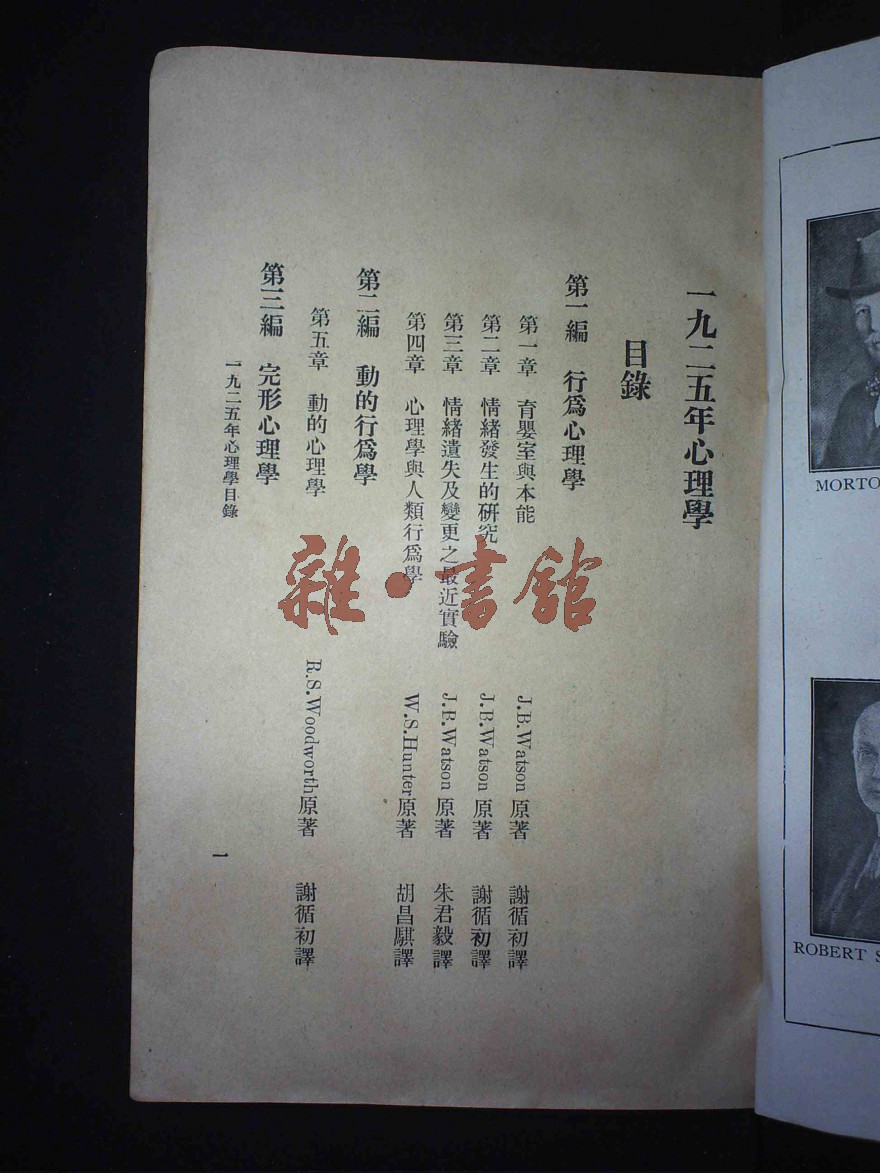 一九二五年心理學
目錄
第一編 行爲心理學
第一章 育嬰室與本能 J.B.Watson 原著 謝循初譯
第二章 情緒發生的研究 J.B.Watson 原著 謝循初譯
第三章 情緒遺失及變更之最近實驗 J.B.Watson 原著 朱君毅譯
第四章 心理學與人類行爲學 W.S.Hunter原著 胡昌騏譯
第二編 動的行爲學
第五章 動的心理學 R.S.Woodworth原著 謝循初譯
第三編 完形心理學
一九二五年心理學目錄
一
雜·書館
MORTO
ROBERT S